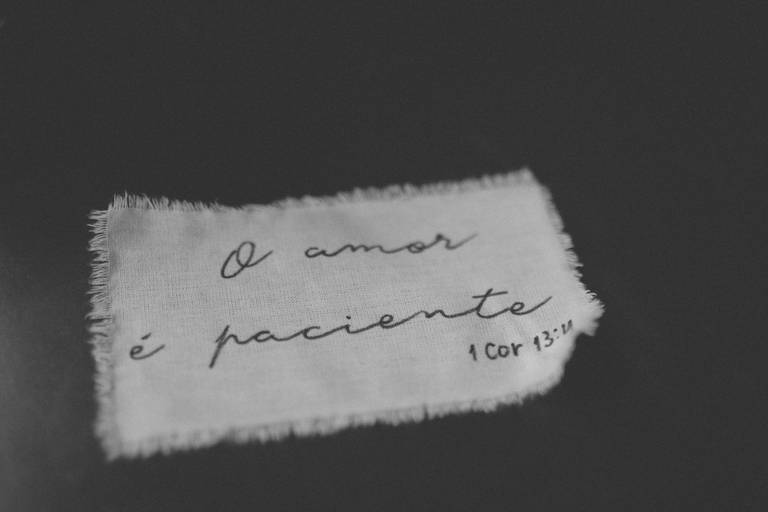 O amor
é paciente
1 Cor 13:4